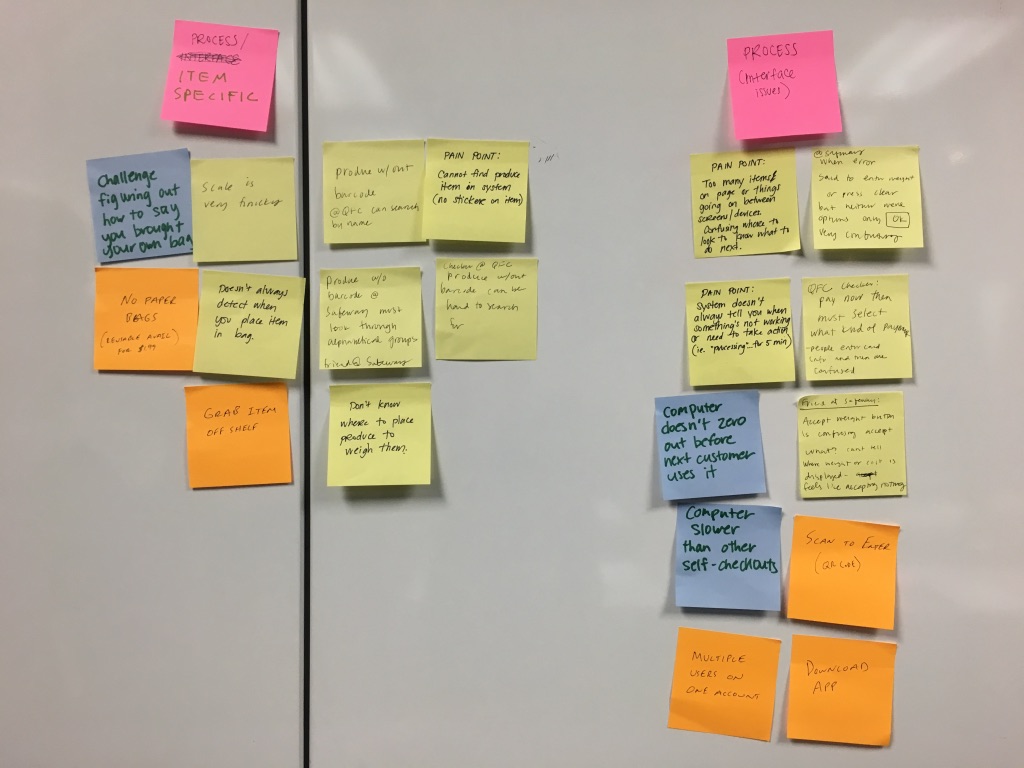 PROCESS/
INTERFACE
ITEM
SPECIFIC
Challenge
figuring out
how to say
you brought
your own bag
Scale is
very finicky
NO PAPER
BAGS
(REUSABLE AVAIL
FOR $1.99)
Doesn't always
detect when
you place item
in bag.
GRAB ITEM
OFF SHELF
produce w/out
barcode
@QFC can search
by name
PAIN POINT:
Cannot find produce
item in system
(no stickers on item)
Produce w/o
barcode @
Safeway must
look through
alphabetical groups-
friend@ Safeway
Checker @ QFC
Produce w/out
barcode can be
hard to search
for
Don't know
where to place
produce to
weigh them.
PROCESS
(interface
issues)
PAIN POINT:
Too many items
on page or things
going on between
screens/devices.
Confusing where to
look to know what to
do next.
@Safeway
when error
Said to enter weight
or press clear
but neither were
options only OK
Very confusing
PAIN POINT:
System doesn't
always tell you when
something's not working
or need to take action
(ie. "processing"... for 5 min)
QFC Checker:
pay now then
must select
what kind of payment
-people enter card
info and then are
confused
Computer
doesn't zero
out before
next customer
uses it
Friend at Safeway:
Accept weight button
is confusing accept
what? can't tell
when weight or cost is
displayed-
feels like accepting
Computer
slower
than other
self-checkouts
SCAN TO ENTER
(QR CODE)
MULTIPLE
USERS ON
ONE ACCOUNT
DOWNLOAD
APP